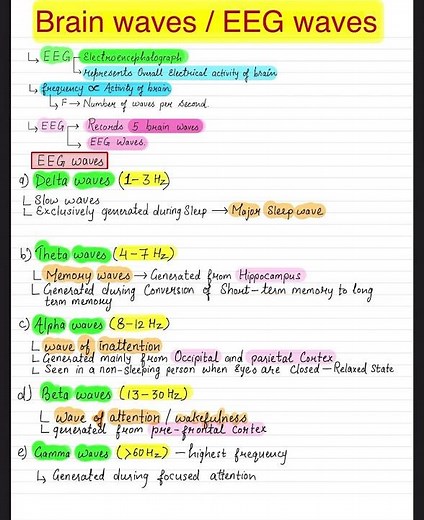 Brain waves / EEG waves
EEG Electroencephalograph
represents Overall Electrical activity of brain
frequency ∝ Activity of brain
F → Number of waves per second.
EEG → Records 5 brain waves
EEG Waves.
EEG waves
a) Delta waves (1-3 Hz)
Slow waves
Exclusively generated during Sleep → Major Sleep wave
b) Theta waves (4-7 Hz)
Memory waves → Generated from Hippocampus
Generated during Conversion of Short-term memory to long
term memory
c) Alpha waves (8-12 Hz)
wave of inattention
Generated mainly from Occipital and parietal Cortex
Seen in a non-sleeping person when Eyes are Closed - Relaxed State
d) Beta waves (13-30 Hz)
Wave of attention / wakefulness
generated from pre-frontal cortex
e) Gamma waves (>60 Hz) - highest frequency
Generated during focused attention